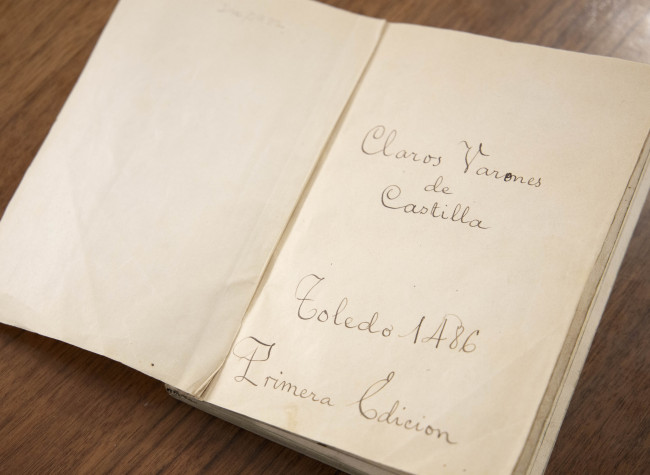 Claros Varones
de
Castilla
Toledo 1486
Primera Edicion